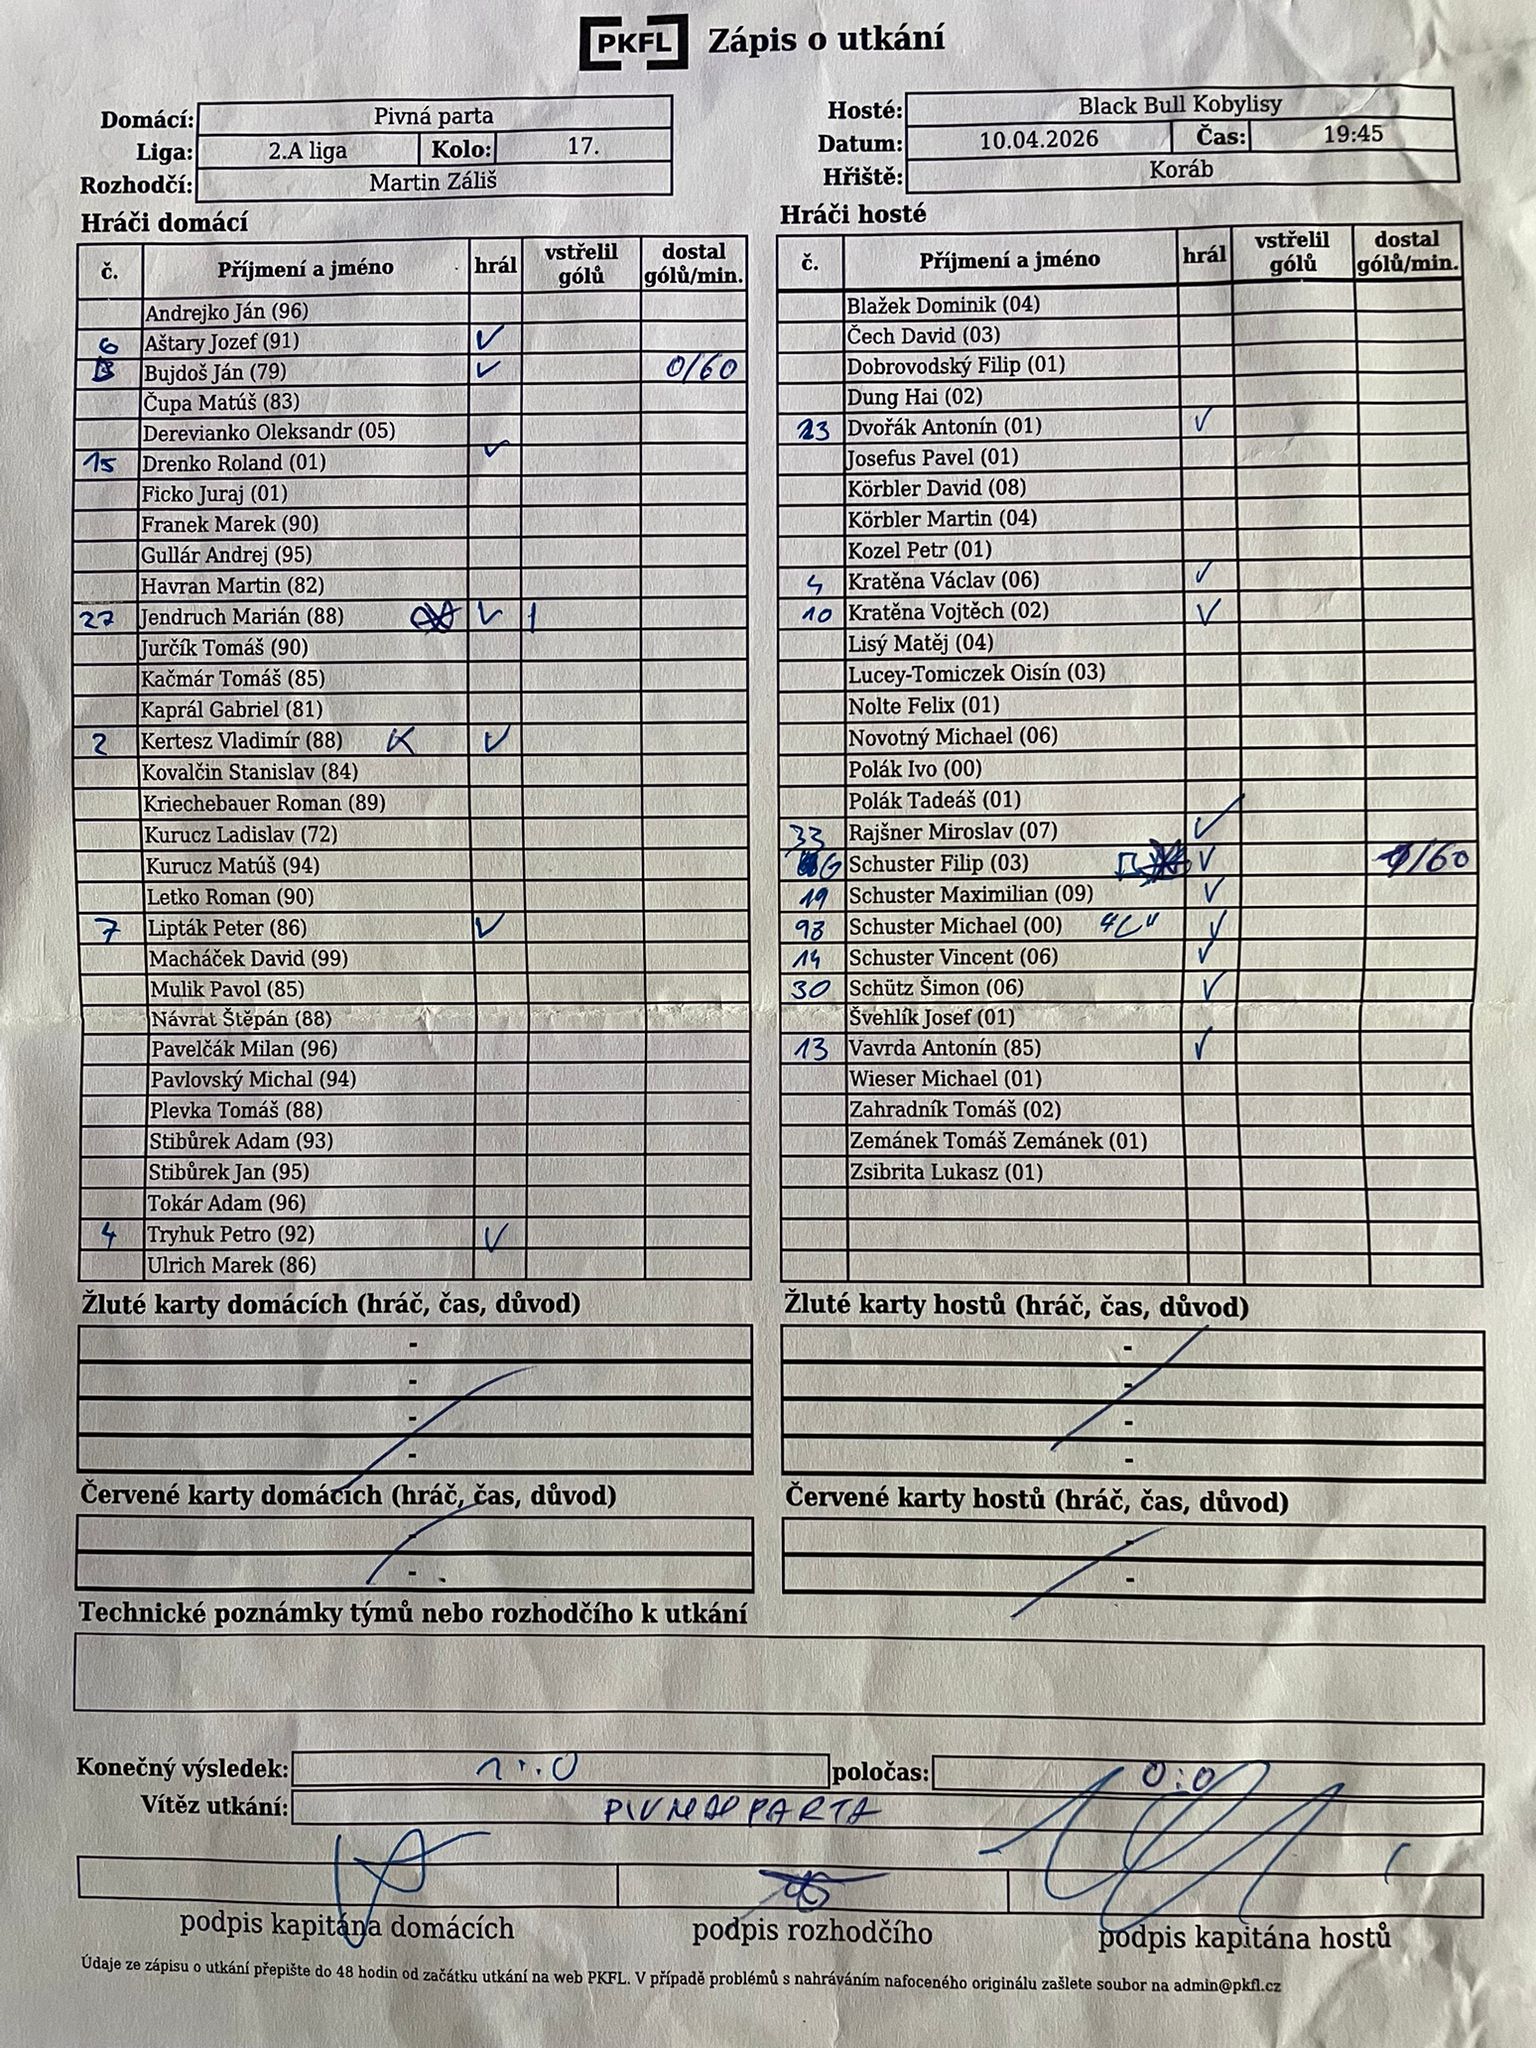 PKFL Zápis o utkání
Domácí: Pivná parta
Liga: 2.A liga Kolo: 17.
Rozhodčí: Martin Záliš
Hosté: Black Bull Kobylisy
Datum: 10.04.2026 Čas: 19:45
Hřiště: Koráb
Hráči domácí
č. Příjmení a jméno hrál vstřelil gólů dostal gólů/min.
Andrejko Ján (96)
6 Aštary Jozef (91) ✓
Bujdoš Ján (79) ✓ 0/60
Čupa Matúš (83)
Derevianko Oleksandr (05)
15 Drenko Roland (01) ✓
Ficko Juraj (01)
Franek Marek (90)
Gullár Andrej (95)
Havran Martin (82)
27 Jendruch Marián (88) ✓ 1
Jurčík Tomáš (90)
Kačmár Tomáš (85)
Kaprál Gabriel (81)
2 Kertesz Vladimír (88) K ✓
Kovalčin Stanislav (84)
Kriechebauer Roman (89)
Kurucz Ladislav (72)
Kurucz Matúš (94)
Letko Roman (90)
7 Lipták Peter (86) ✓
Macháček David (99)
Mulik Pavol (85)
Návrat Štěpán (88)
Pavelčák Milan (96)
Pavlovský Michal (94)
Plevka Tomáš (88)
Stibůrek Adam (93)
Stibůrek Jan (95)
Tokár Adam (96)
4 Tryhuk Petro (92) ✓
Ulrich Marek (86)
Hráči hosté
č. Příjmení a jméno hrál vstřelil gólů dostal gólů/min.
Blažek Dominik (04)
Čech David (03)
Dobrovodský Filip (01)
Dung Hai (02)
23 Dvořák Antonín (01) ✓
Josefus Pavel (01)
Körbler David (08)
Körbler Martin (04)
Kozel Petr (01)
Kratěna Václav (06) ✓
10 Kratěna Vojtěch (02) ✓
Lisý Matěj (04)
Lucey-Tomiczek Oisín (03)
Nolte Felix (01)
Novotný Michael (06)
Polák Ivo (00)
Polák Tadeáš (01)
33 Rajšner Miroslav (07) ✓
Schuster Filip (03) ✓ /60
19 Schuster Maximilian (09) ✓
98 Schuster Michael (00) "C" ✓
14 Schuster Vincent (06) ✓
30 Schütz Šimon (06) ✓
Švehlík Josef (01)
13 Vavrda Antonín (85) ✓
Wieser Michael (01)
Zahradník Tomáš (02)
Zemánek Tomáš Zemánek (01)
Zsibrita Lukasz (01)
Žluté karty domácích (hráč, čas, důvod)
-
-
-
-
Žluté karty hostů (hráč, čas, důvod)
-
-
-
-
Červené karty domácích (hráč, čas, důvod)
-
-
Červené karty hostů (hráč, čas, důvod)
-
-
Technické poznámky týmů nebo rozhodčího k utkání
Konečný výsledek: 1:0 poločas: 0:0
Vítěz utkání: PIVNÁ PARTA
podpis kapitána domácích podpis rozhodčího podpis kapitána hostů
Údaje ze zápisu o utkání přepište do 48 hodin od začátku utkání na web PKFL. V případě problémů s nahráváním nafoceného originálu zašlete soubor na admin@pkfl.cz